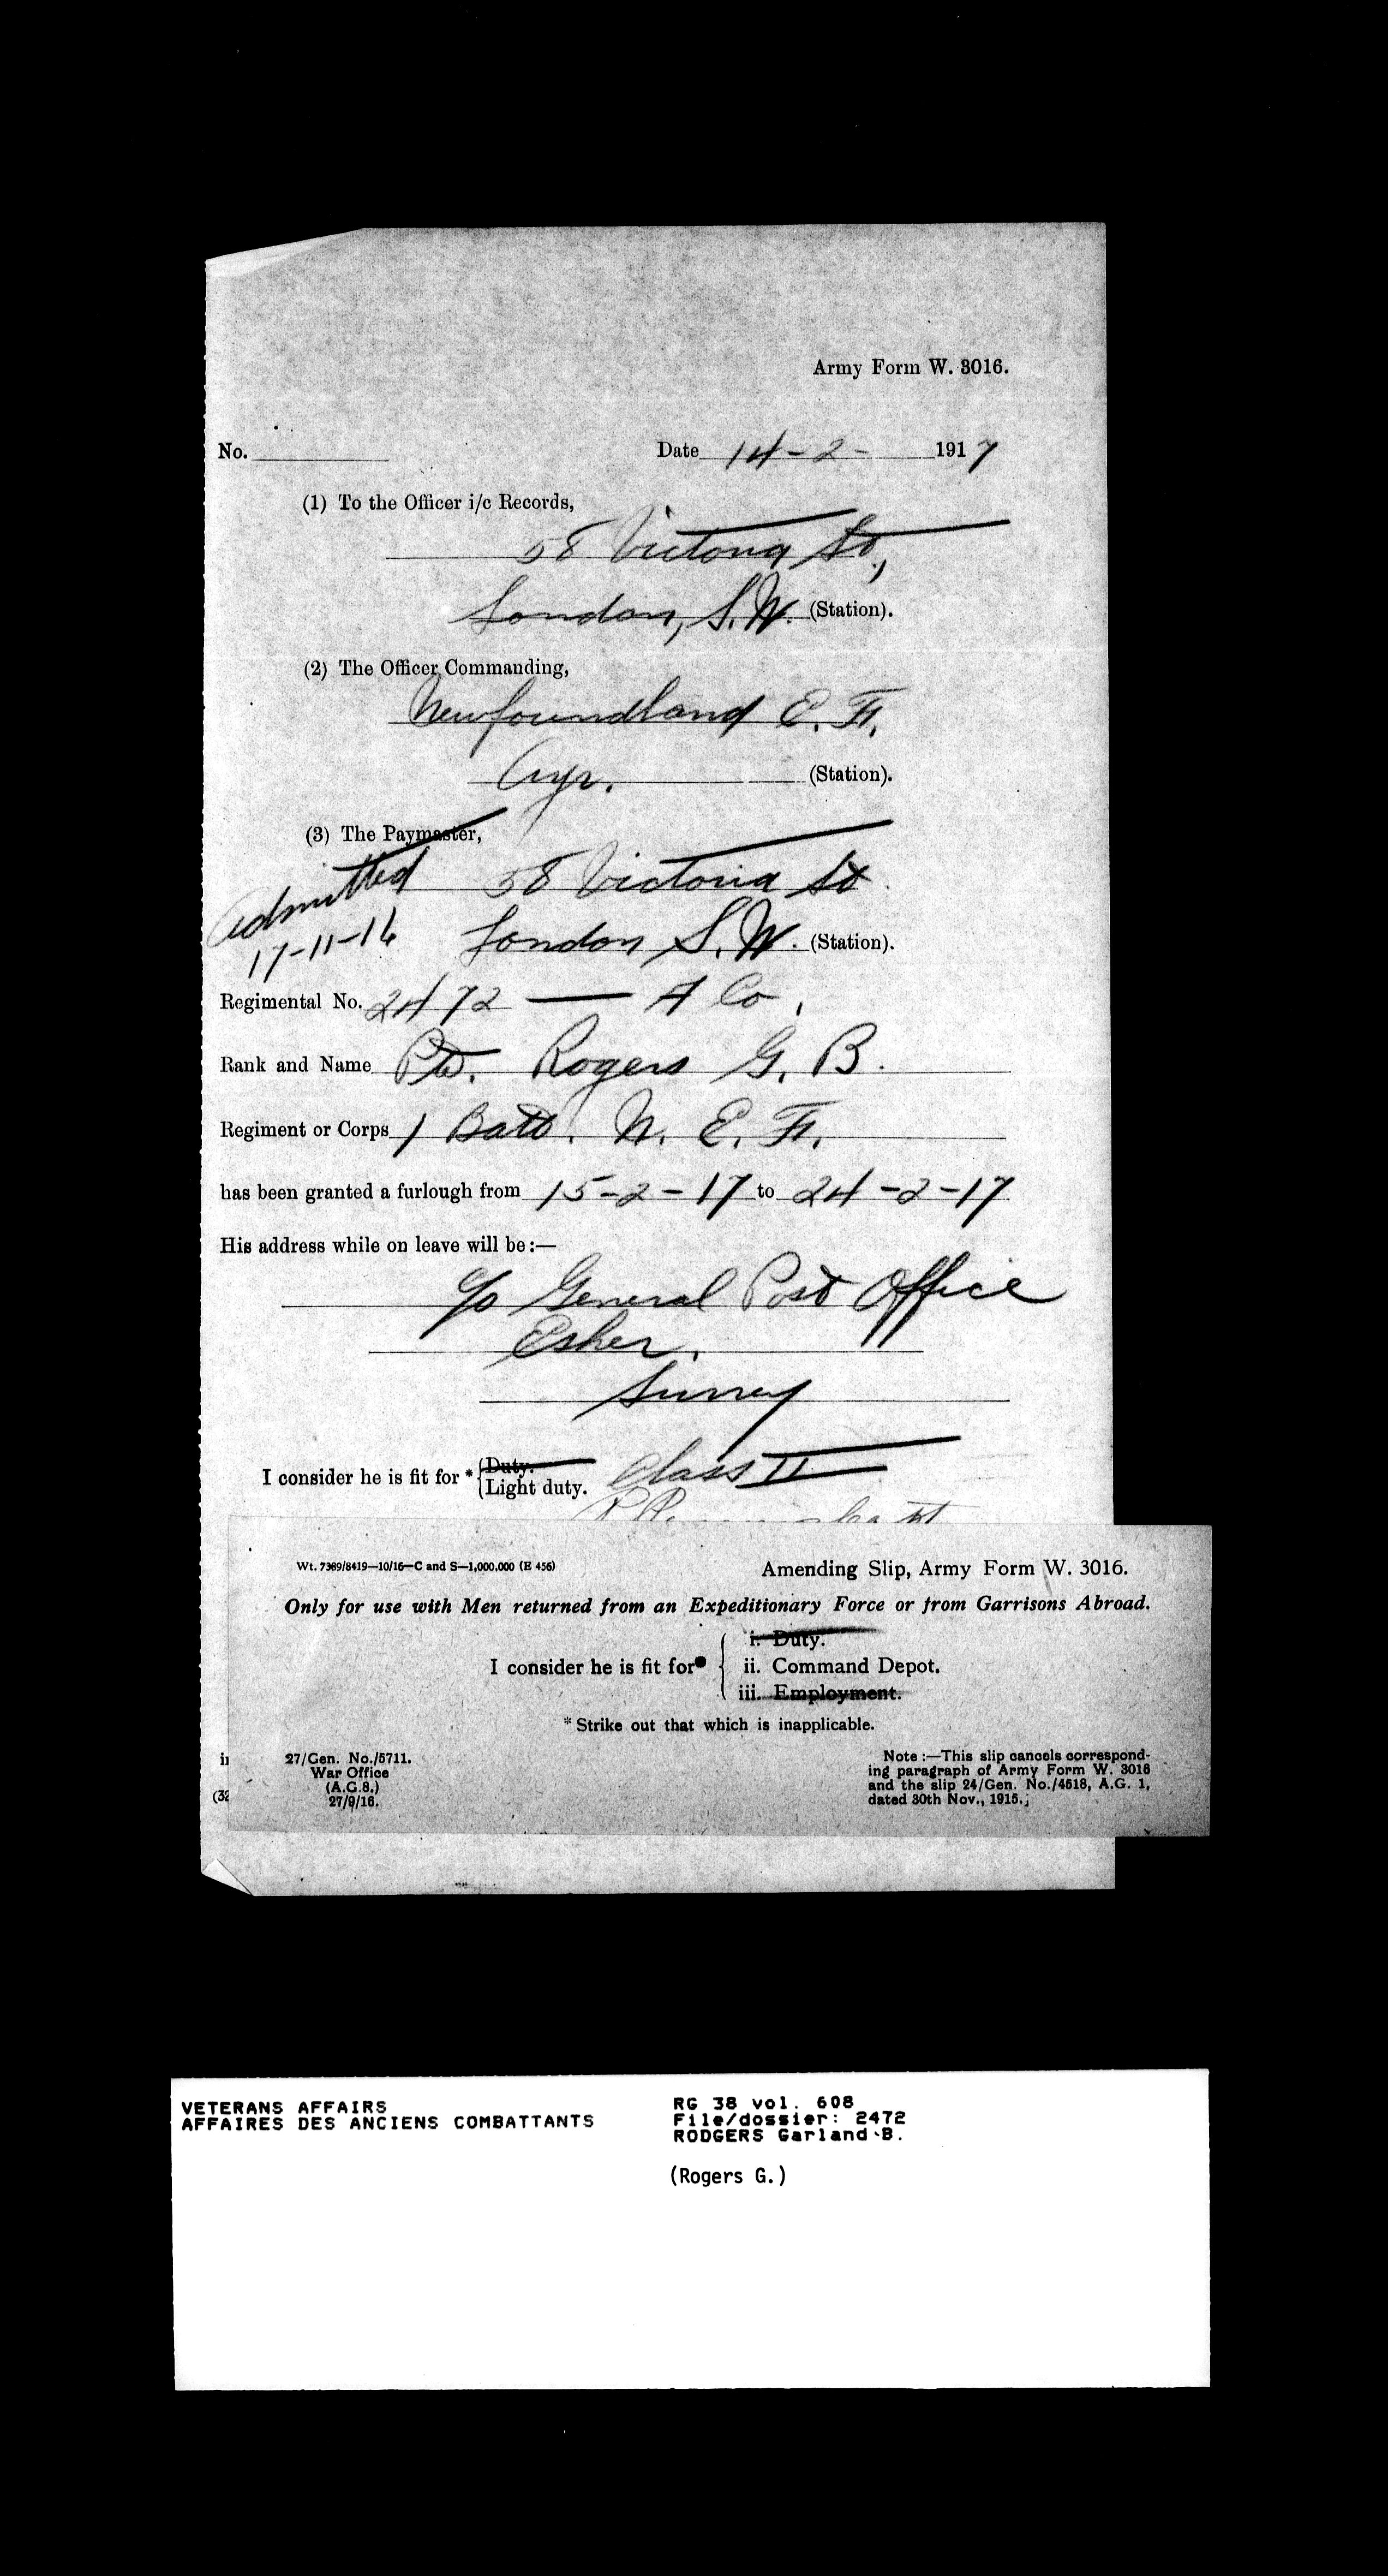 Army Form W. 3016.
No. Date 14-2- 1917
(1) To the Officer i/c Records,
58 Victoria St,
London, S.W. (Station).
(2) The Officer Commanding,
Newfoundland E. F.
Ayr. (Station).
(3) The Paymaster,
Admitted 58 Victoria St
17-11-16 London S.W. (Station).
Regimental No. 2472 — A Co.
Rank and Name Pte. Rogers G. B.
Regiment or Corps 1 Batt. N. E. F.
has been granted a furlough from 15-2-17 to 24-2-17
His address while on leave will be:—
c/o General Post Office
Esher.
Surrey
I consider he is fit for * Duty.
Light duty. Class II
Wt. 7389/8419—10/16—C and S—1,000,000 (E 456) Amending Slip, Army Form W. 3016.
Only for use with Men returned from an Expeditionary Force or from Garrisons Abroad.
i. Duty.
I consider he is fit for* ii. Command Depot.
iii. Employment.
* Strike out that which is inapplicable.
27/Gen. No./5711.
War Office
(A.G.8.)
27/9/16.
Note :—This slip cancels correspond-
ing paragraph of Army Form W. 3016
and the slip 24/Gen. No./4518, A.G. 1,
dated 30th Nov., 1915.
(32
VETERANS AFFAIRS
AFFAIRES DES ANCIENS COMBATTANTS
RG 38 vol. 608
File/dossier: 2472
RODGERS Garland B.
(Rogers G.)